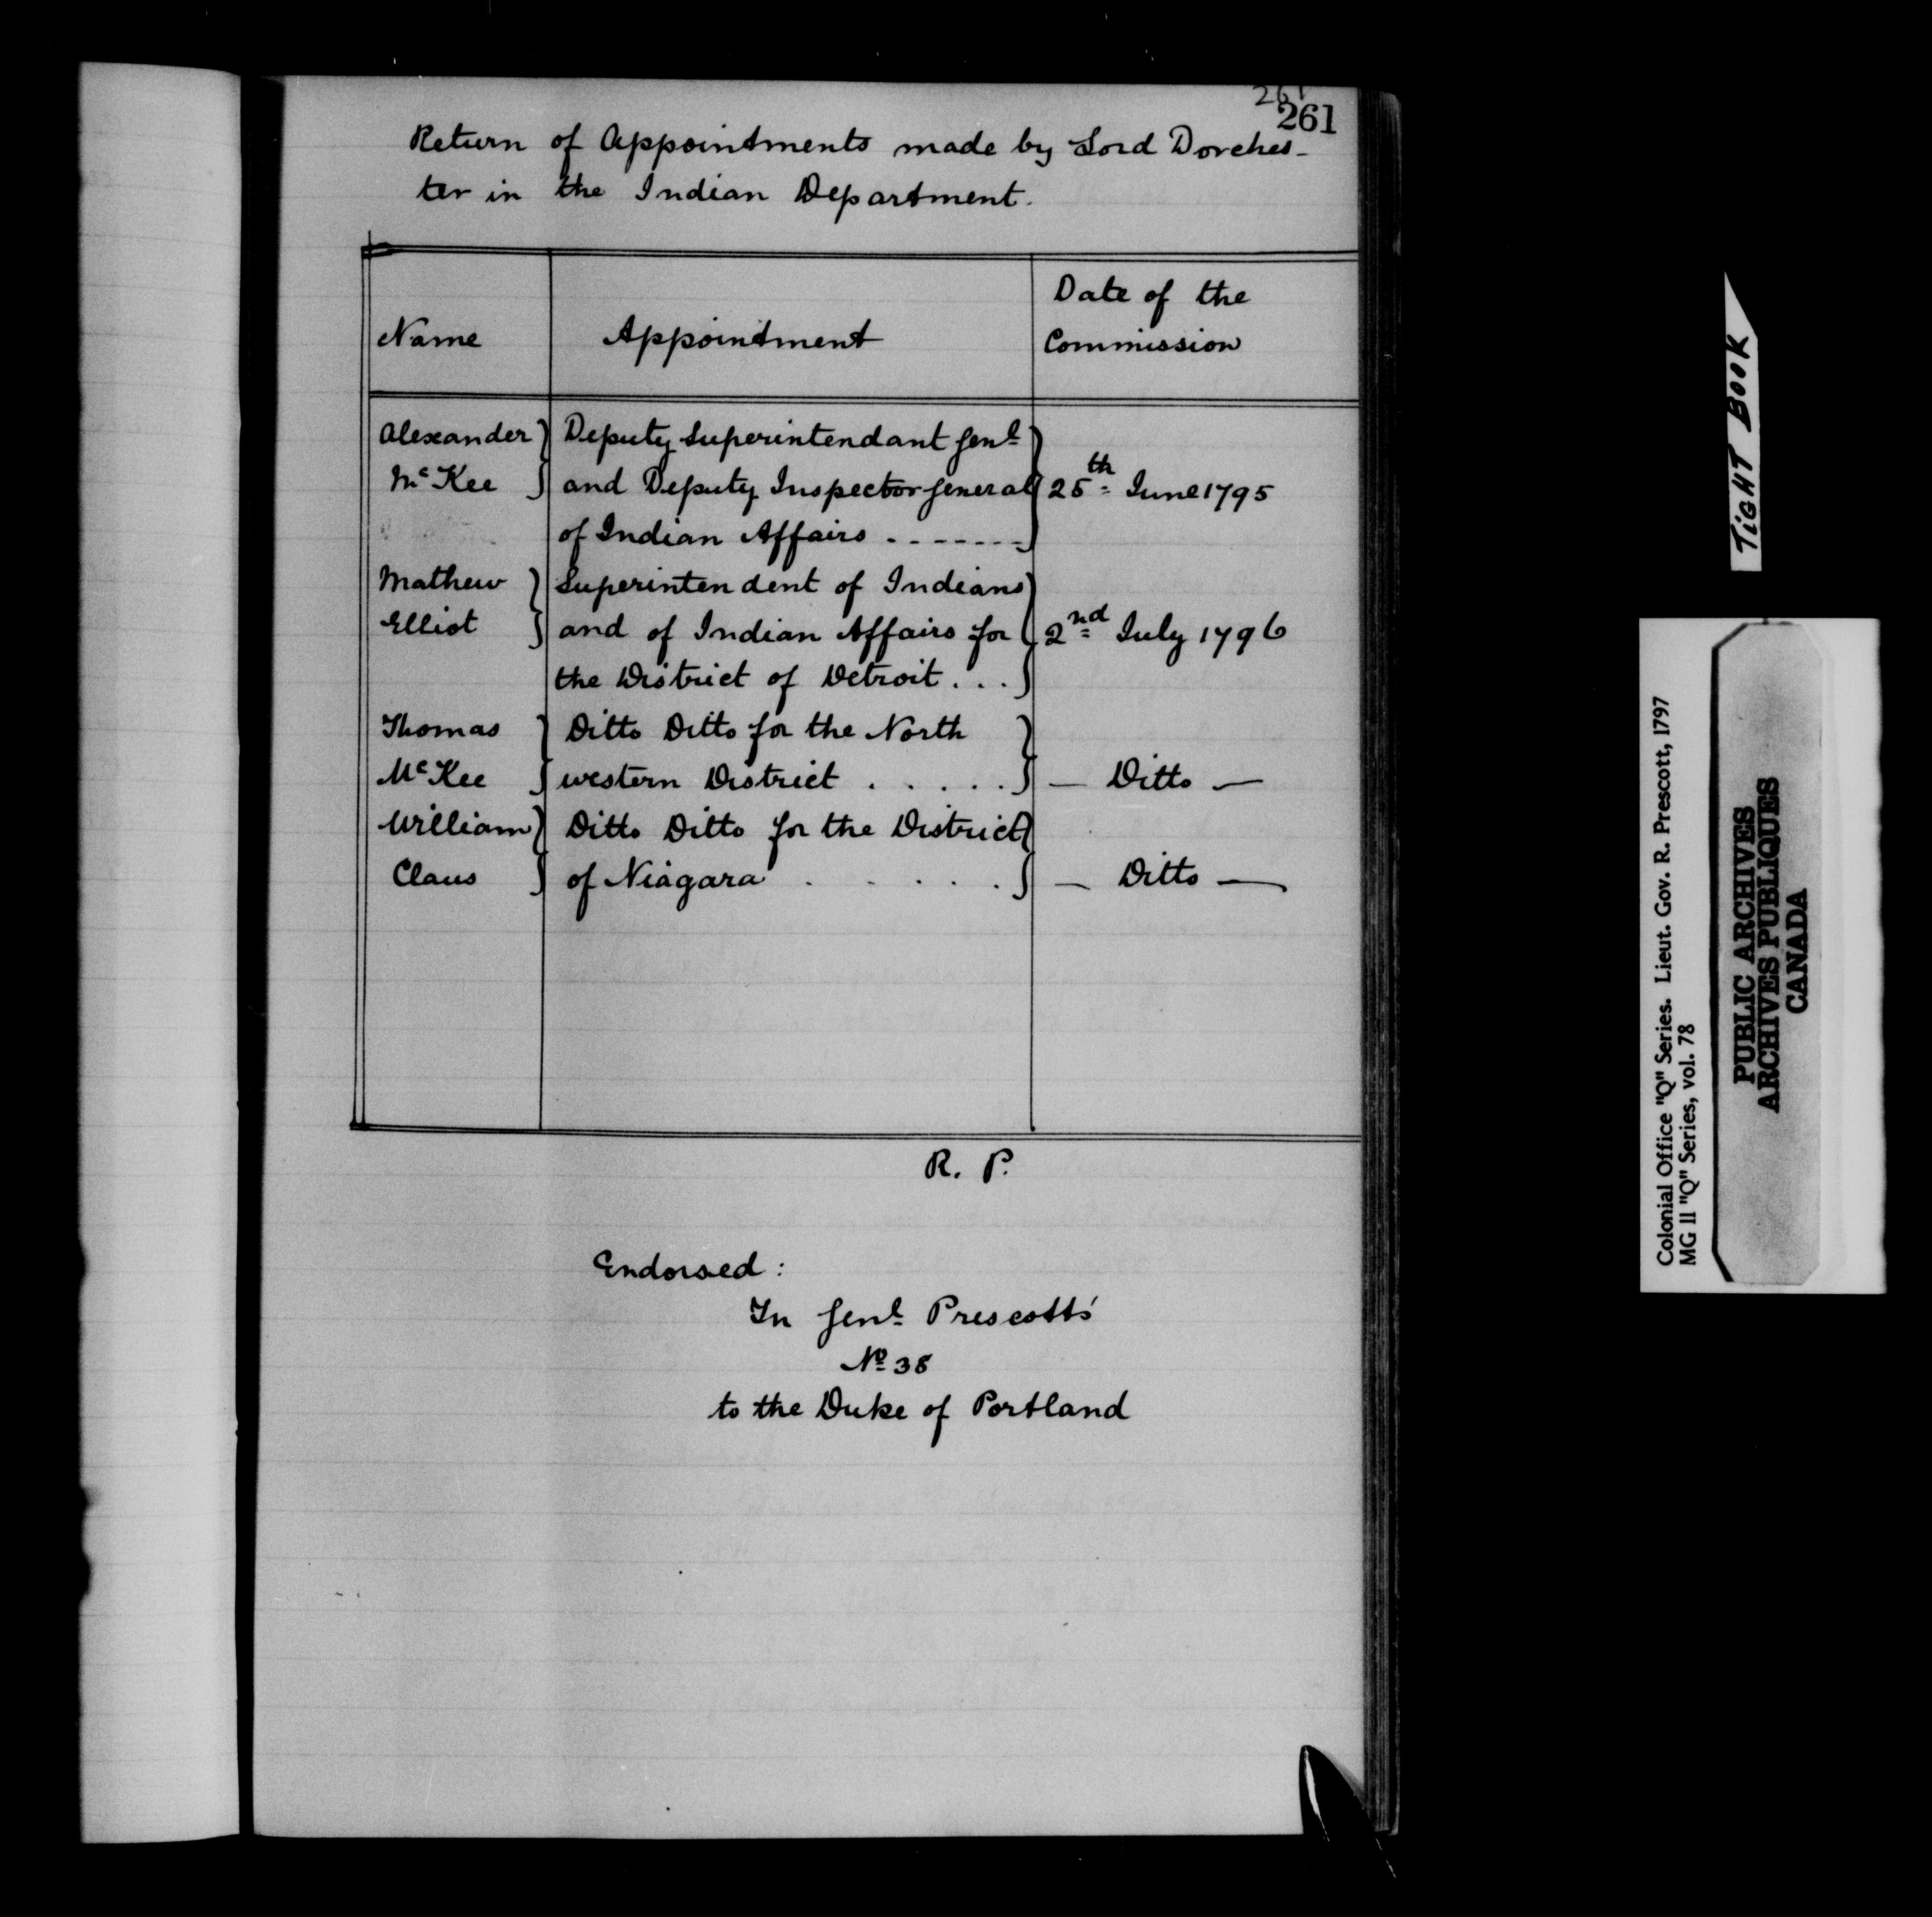 261
261
Return of Appointments made by Lord Dorches-
ter in the Indian Department.
Name
Appointment
Date of the
Commission
Alexander
McKee
Deputy Superintendant Genl
and Deputy Inspector General
of Indian Affairs - - - - - - -
25th June 1795
Mathew
Elliot
Superintendent of Indians
and of Indian Affairs for
the District of Detroit . . .
2nd July 1796
Thomas
McKee
Ditto Ditto for the North
western District . . . . .
— Ditto —
William
Claus
Ditto Ditto for the District
of Niagara . . . . .
— Ditto —
R. P.
Endorsed:
In Genl Prescott's
No 38
to the Duke of Portland
TIGHT BOOK
Colonial Office "Q" Series. Lieut. Gov. R. Prescott, 1797
MG 11 "Q" Series, vol. 78
PUBLIC ARCHIVES
ARCHIVES PUBLIQUES
CANADA